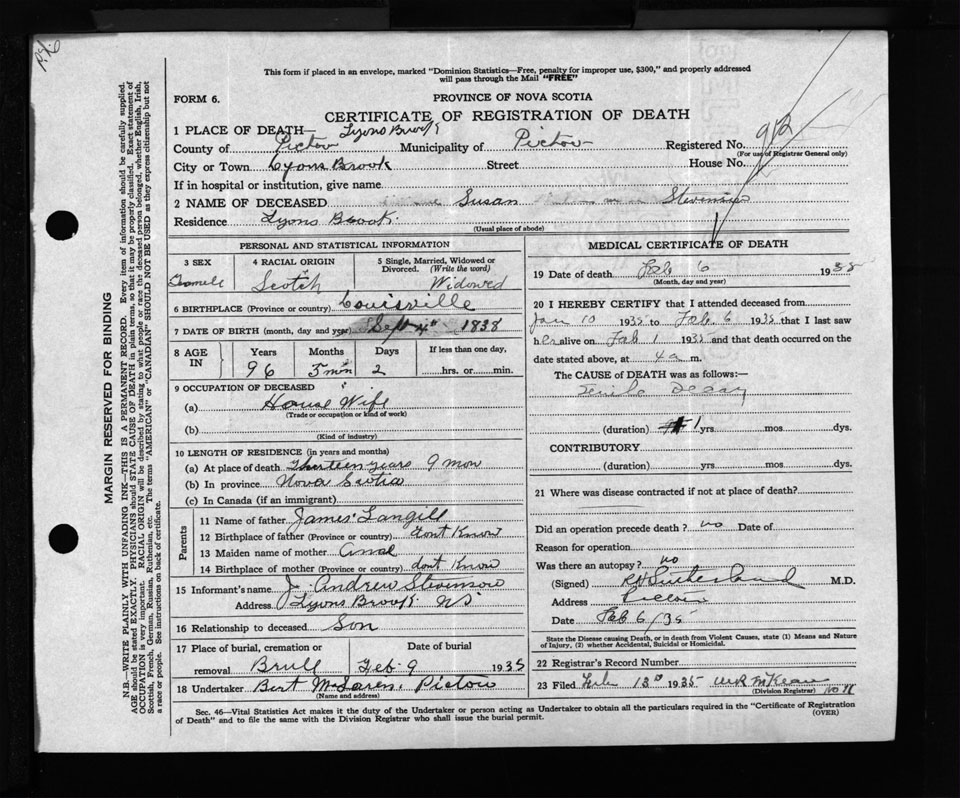 This form if placed in an envelope, marked "Dominion Statistics—Free, penalty for improper use, $300," and properly addressed
will pass through the Mail "FREE"
FORM 6.
PROVINCE OF NOVA SCOTIA
CERTIFICATE OF REGISTRATION OF DEATH
1 PLACE OF DEATH— Lyons Brook
County of Pictou Municipality of Pictou Registered No. 912
(For use of Registrar General only)
City or Town Lyons Brook Street House No.
If in hospital or institution, give name
2 NAME OF DECEASED Susan
Residence Lyons Brook.
(Usual place of abode)
MARGIN RESERVED FOR BINDING
N.B.—WRITE PLAINLY WITH UNFADING INK—THIS IS A PERMANENT RECORD. Every item of information should be carefully supplied.
AGE should be stated EXACTLY. PHYSICIANS should STATE CAUSE OF DEATH in plain terms, so that it may be properly classified. Exact statement of
OCCUPATION is very important. RACIAL ORIGIN will be described by stating to what people or race the deceased person belonged, whether English, Irish,
Scottish, French, German, Russian, Ruthenian, etc. The terms "AMERICAN" or "CANADIAN" SHOULD NOT BE USED as they express citizenship but not
a race or people. See instructions on back of certificate.
PERSONAL AND STATISTICAL INFORMATION
3 SEX
4 RACIAL ORIGIN
Scotch
5 Single, Married, Widowed or
Divorced. (Write the word)
Widowed
6 BIRTHPLACE (Province or country) Louisville
7 DATE OF BIRTH (month, day and year) Sept 4th 1838
8 AGE
IN
Years
96
Months
5 mon
Days
2
If less than one day,
hrs. or min.
9 OCCUPATION OF DECEASED
(a) House Wife
(Trade or occupation or kind of work)
(b)
(Kind of industry)
10 LENGTH OF RESIDENCE (in years and months)
(a) At place of death Thirteen years 9 mon
(b) In province Nova Scotia
(c) In Canada (if an immigrant)
Parents
11 Name of father James Langill
12 Birthplace of father (Province or country) dont Know
13 Maiden name of mother
14 Birthplace of mother (Province or country) dont Know
15 Informant's name J. Andrew Stevenson
Address Lyons Brook NS
16 Relationship to deceased Son
17 Place of burial, cremation or
removal
Date of burial
Feb 9 1935
18 Undertaker Bert McLaren, Pictou
(Name and address)
MEDICAL CERTIFICATE OF DEATH
19 Date of death Feb 6 1935
(Month, day and year)
20 I HEREBY CERTIFY that I attended deceased from
Jan 10 1935 to Feb 6 1935 that I last saw
her alive on Feb 1 1935 and that death occurred on the
date stated above, at 4 a m.
The CAUSE of DEATH was as follows:—
Senile Decay
(duration) 1 yrs mos dys.
CONTRIBUTORY
(duration) yrs. mos. dys.
21 Where was disease contracted if not at place of death?
Did an operation precede death? no Date of
Reason for operation
Was there an autopsy? no
(Signed) Sutherland M.D.
Address Pictou
Date Feb 6/35
State the Disease causing Death, or in death from Violent Causes, state (1) Means and Nature
of Injury, (2) whether Accidental, Suicidal or Homicidal.
22 Registrar's Record Number
23 Filed 1935 McKean
(Division Registrar)
Sec. 46—Vital Statistics Act makes it the duty of the Undertaker or person acting as Undertaker to obtain all the particulars required in the "Certificate of Registration
of Death" and to file the same with the Division Registrar who shall issue the burial permit.
(OVER)